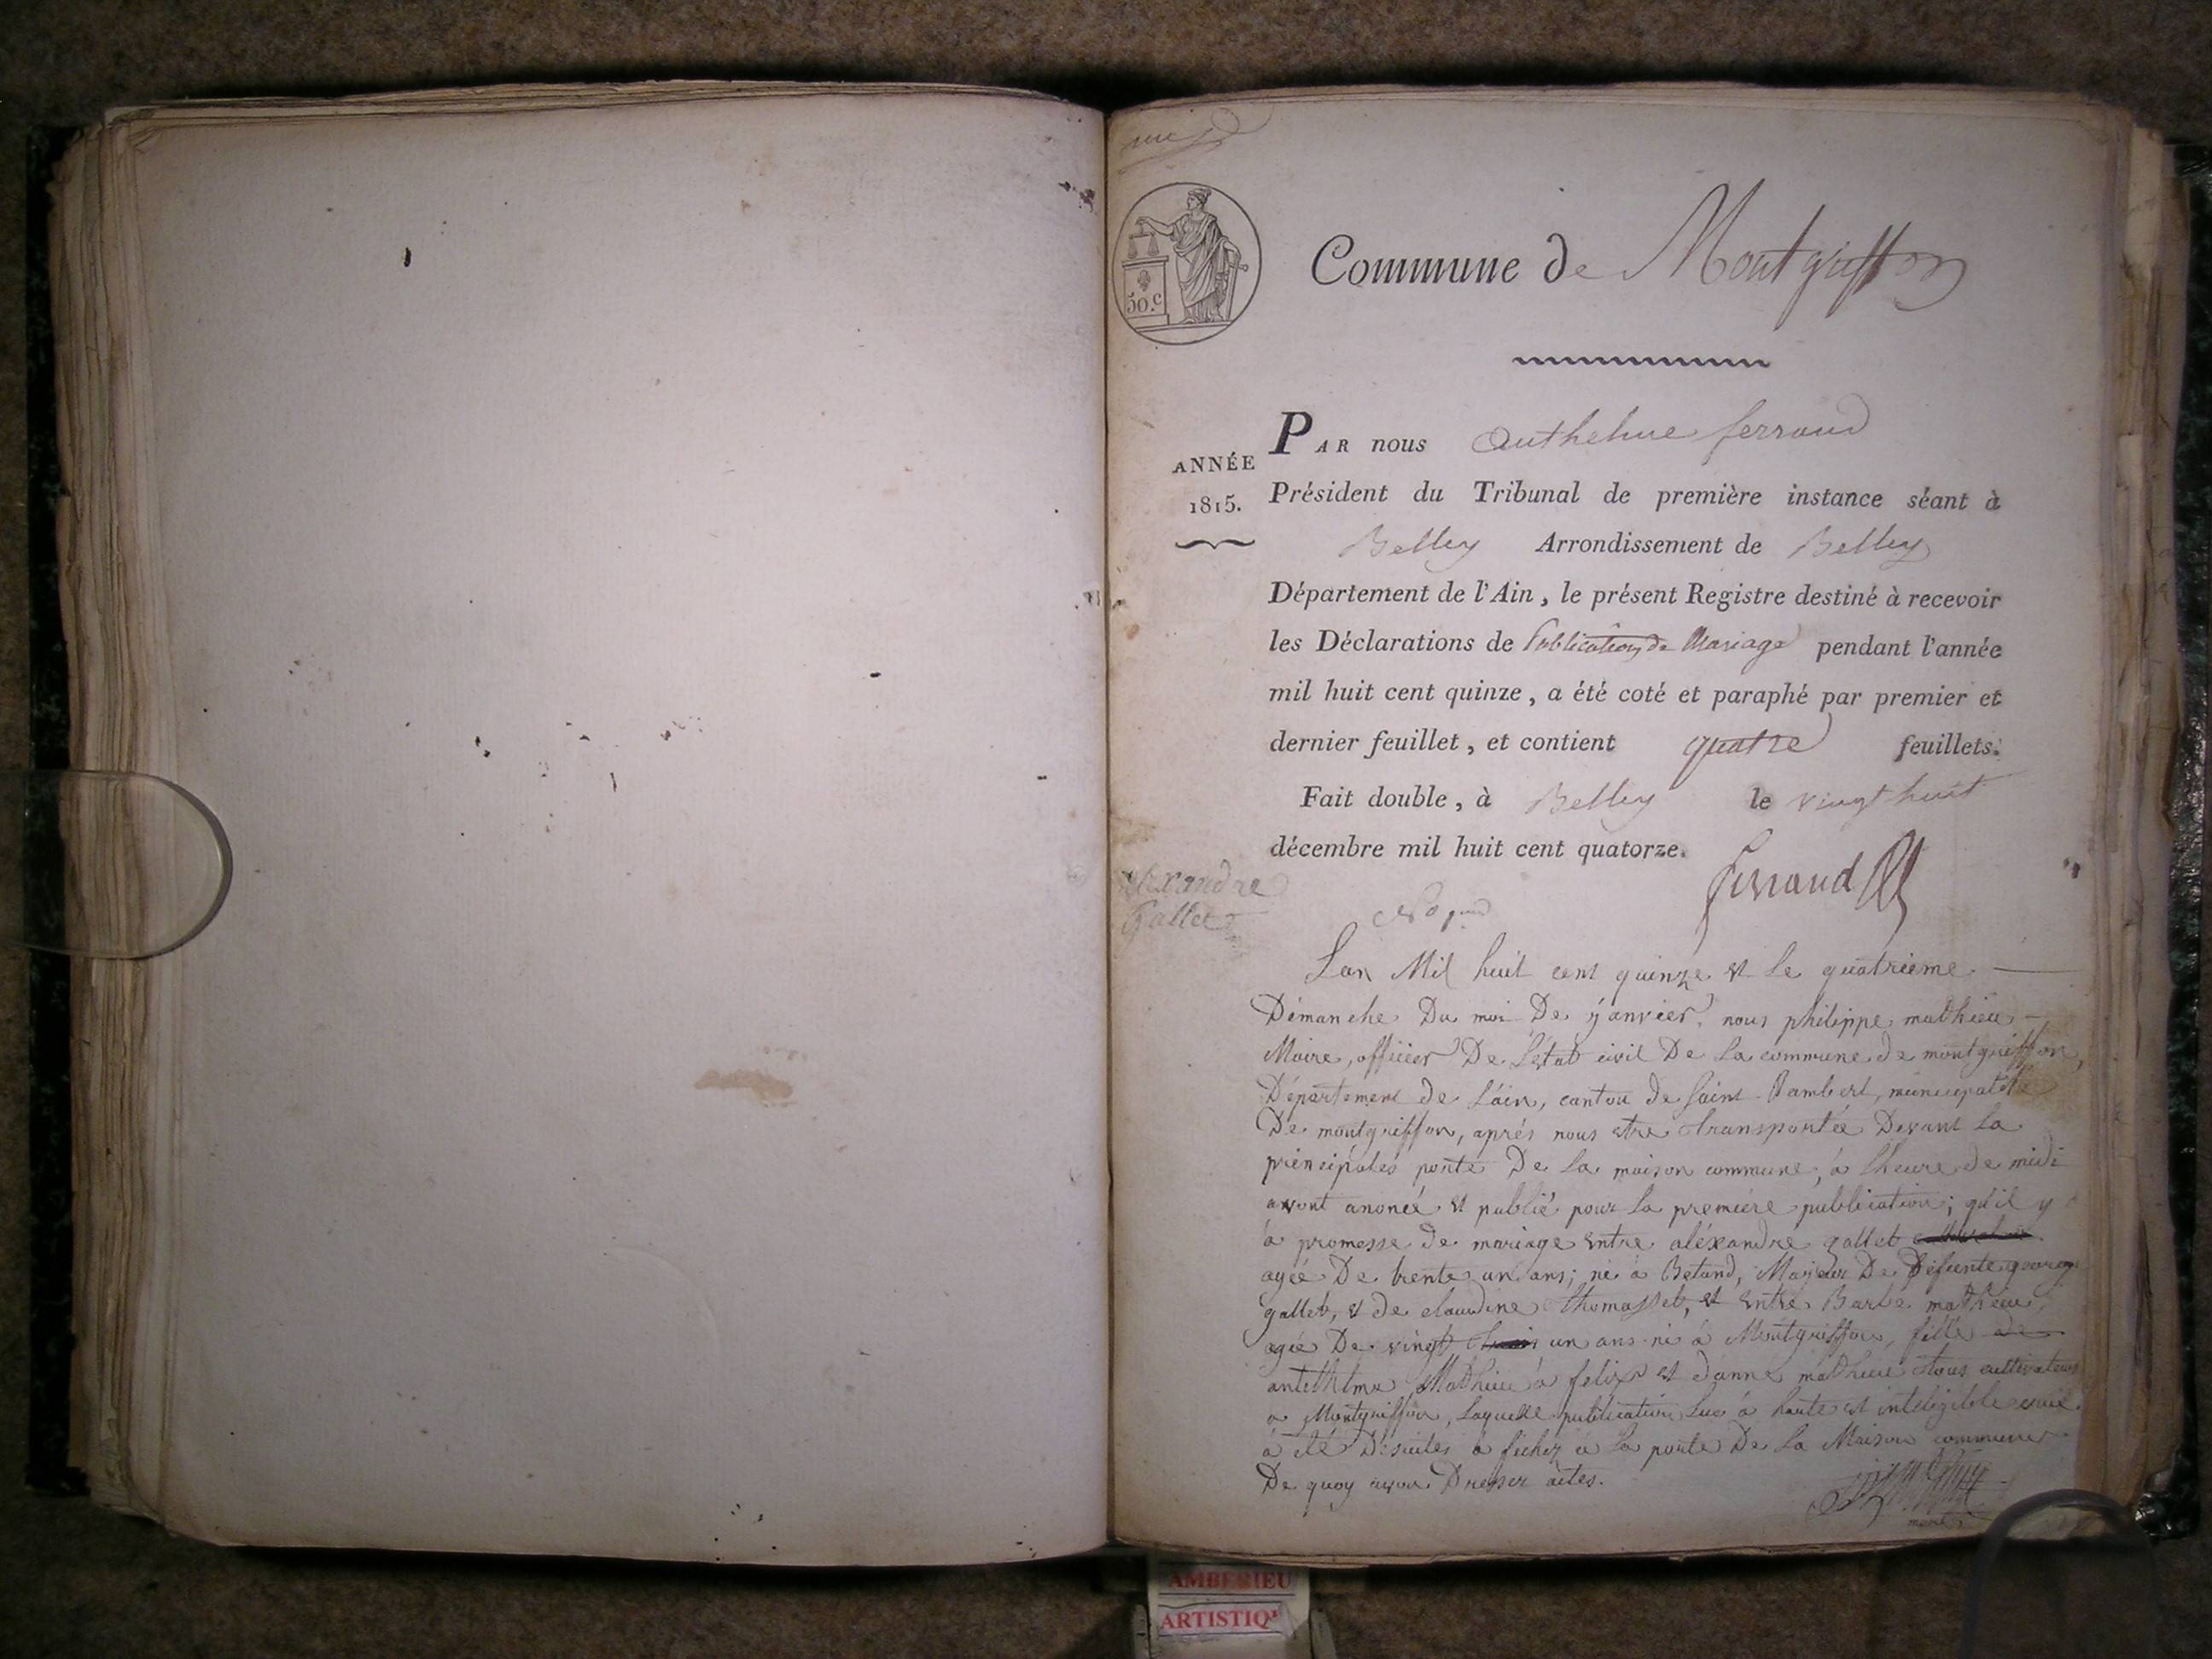 50.c
Commune de Montgriffon
ANNÉE
1815.
PAR nous Anthelme ferrand
Président du Tribunal de première instance séant à
Belley Arrondissement de Belley
Département de l'Ain, le présent Registre destiné à recevoir
les Déclarations de Publication de Mariage pendant l'année
mil huit cent quinze, a été coté et paraphé par premier et
dernier feuillet, et contient quatre feuillets.
Fait double, à Belley le vingt huit
décembre mil huit cent quatorze.
ferrand
alexandre
gallet
Lan Mil huit cent quinze et le quatrieme
Démanche Du moi De janvier, nous philippe mathieu
Maire, officier De Létat civil De La commune de montgriffon,
Département de Láin, canton de saint Rambert, municipalité
De montgriffon, aprés nous etre transportée Devant la
principales porte De La maison commune, à lheure de midi
avont anoncé et publié pour la premiére publication; qu'il y
à promesse de mariage entre aléxandre gallet
agée De trente un ans; né à Betand, Majeur De Défunte georg
gallet, et de claudine thomasset, et entre Barbe mathieu,
agée De vingt un ans né à Montgriffon, fille de
antelhlme Mathieu à felix et danne mathieu tous cultivateurs
a Montgriffon, Laquelle publication Lue à haute et inteligible
à été Desuites à fichez à La porte De La Maison commune
De quoy avon Dresser actes.
maire
AMBERIEU
ARTISTIQ